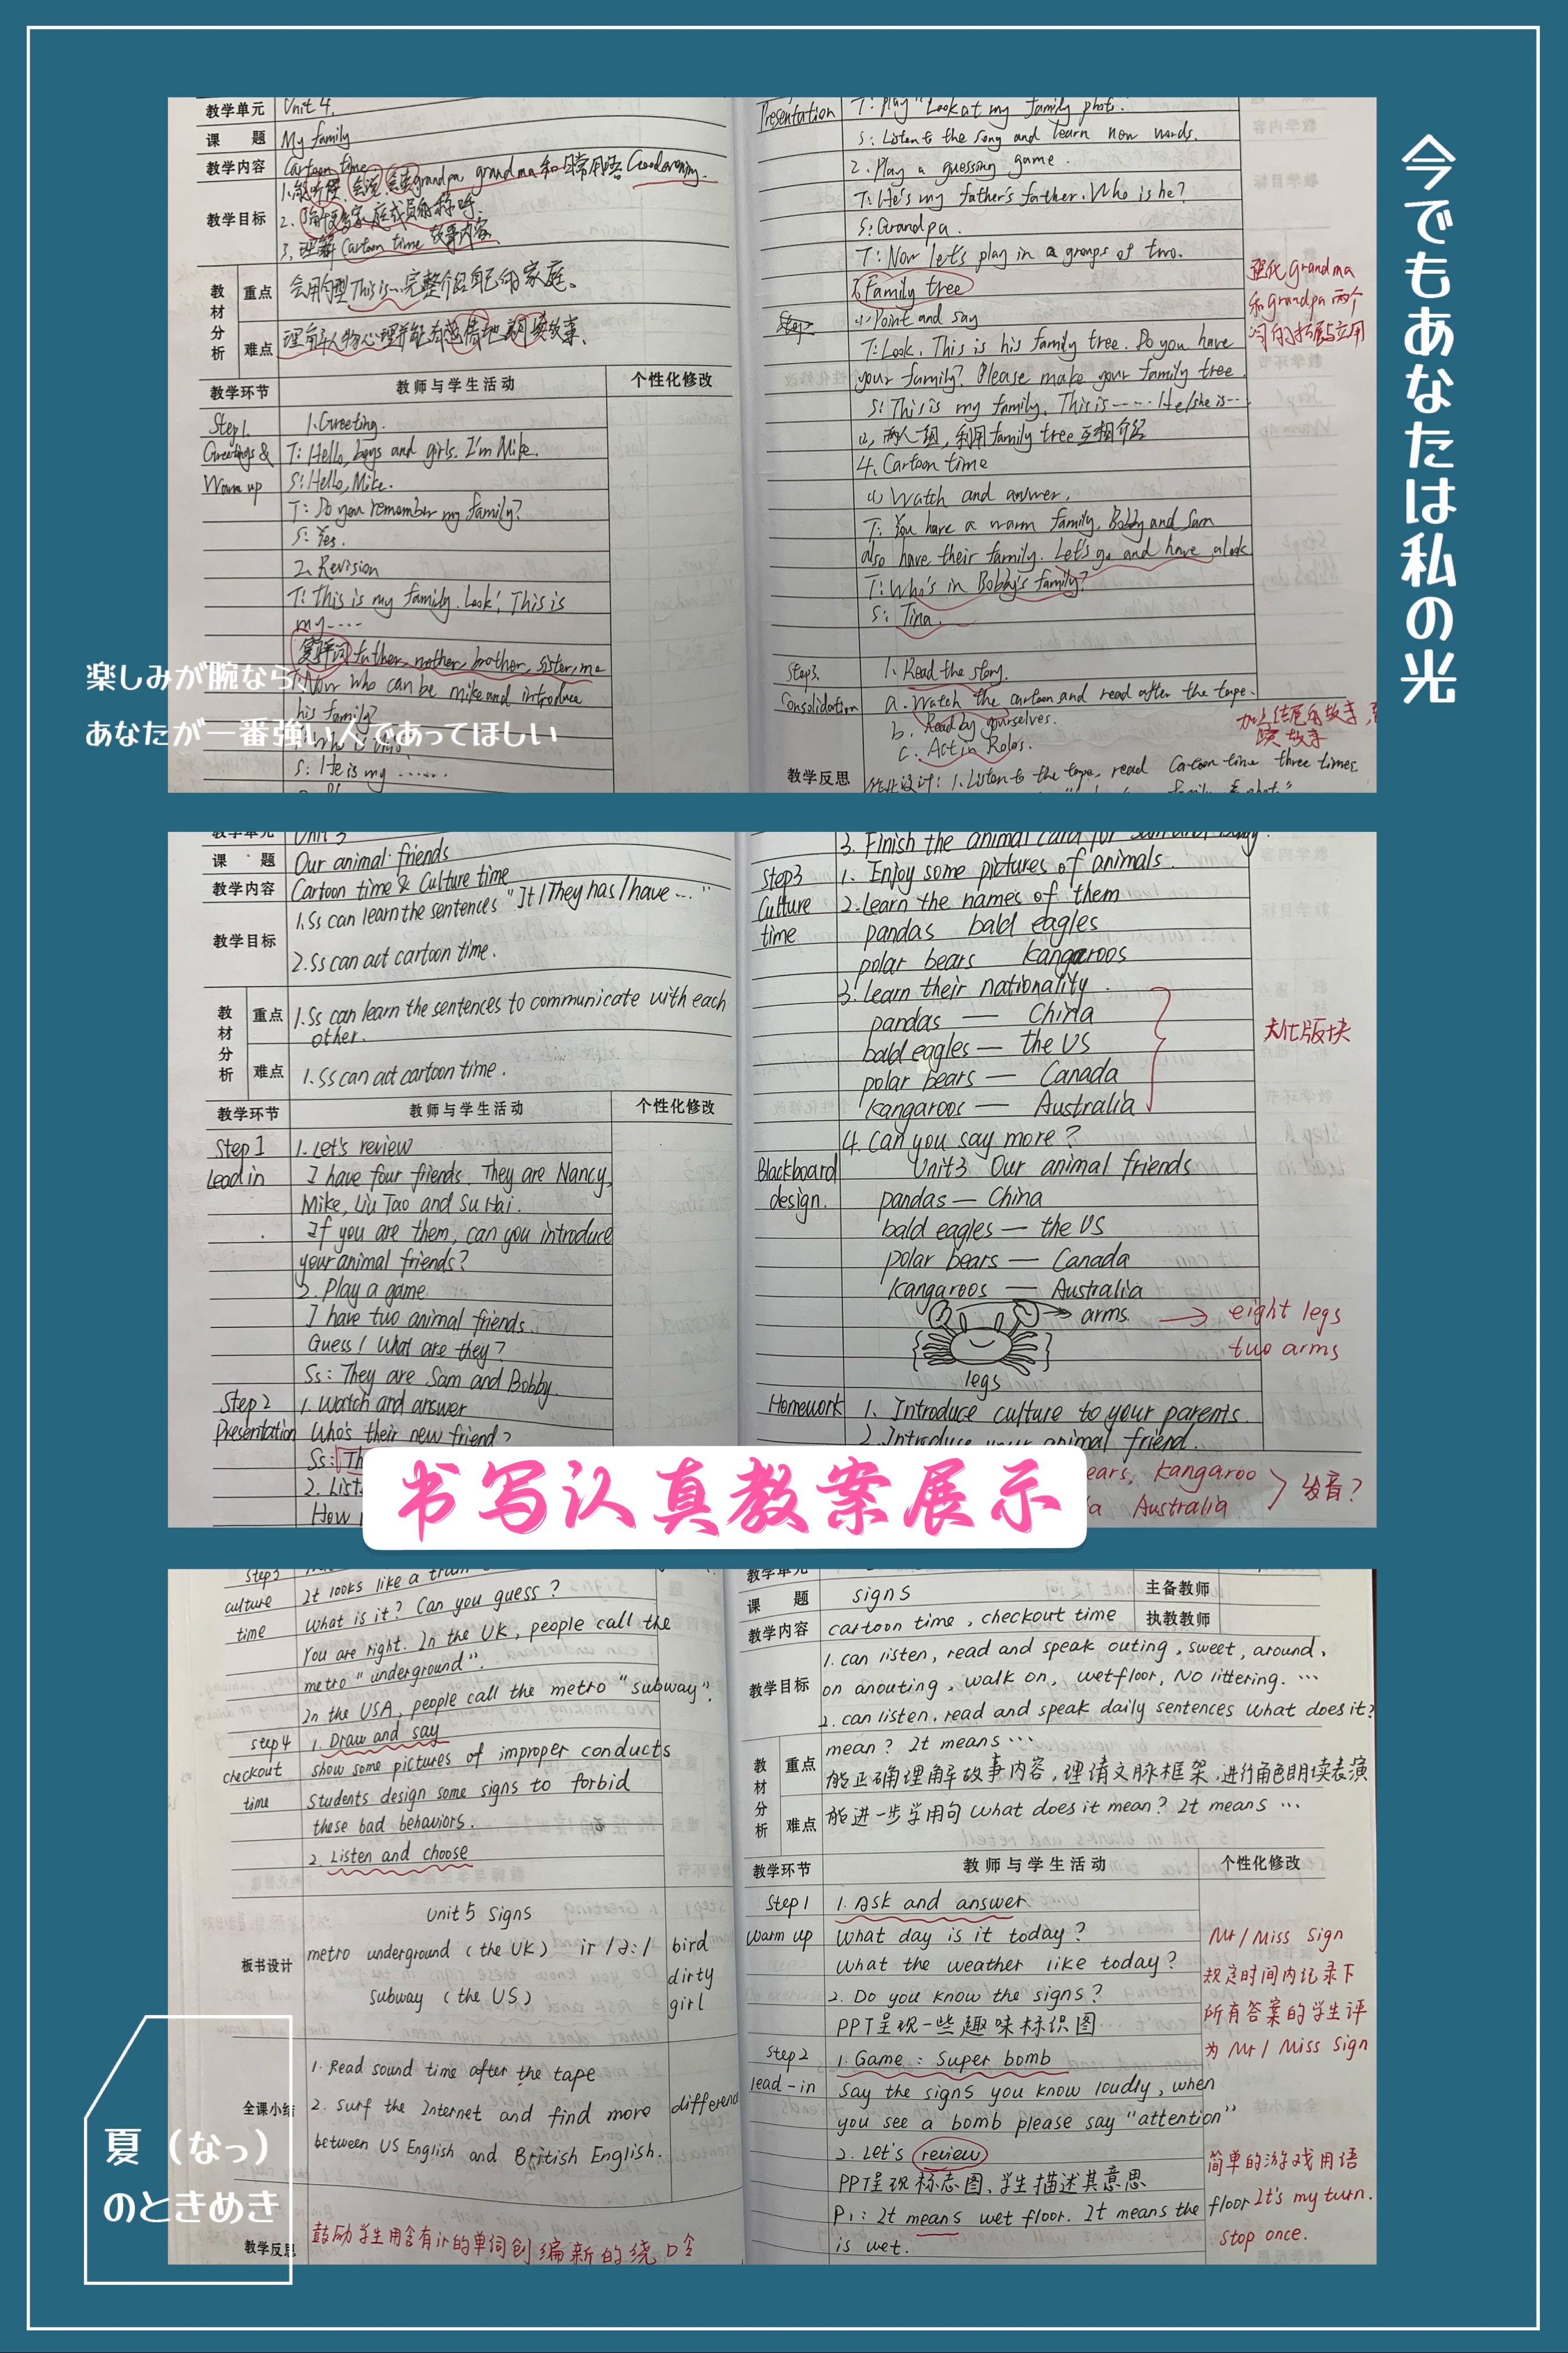 今でもあなたは私の光
教学单元 Unit 4.
课 题 My family
教学内容 Cartoon time
教学目标 1.能听懂、会说、会读grandpa grandma和日常用语Good evening.
3.理解Cartoon time故事内容
教材分析 重点 会用句型This is…完整介绍自己的家庭。
难点
教学环节 教师与学生活动 个性化修改
Step1. 1.Greeting.
Greetings & T: Hello, boys and girls. I'm Mike.
Warm up S: Hello, Mike.
T: Do you remember my family?
S: Yes.
2. Revision
T: This is my family. Look! This is
my……
father, mother, brother, sister, me
T: Now who can be mike and introduce
his family?
S: He is my ……
楽しみが腕なら、
あなたが一番強い人であってほしい
Presentation T: Play "Look at my family photo."
S: Listen to the song and learn new words.
2. Play a guessing game.
T: He's my father's father. Who is he?
S: Grandpa.
T: Now let's play in a groups of two.
3. Family tree
(1) Point and say
T: Look. This is his family tree. Do you have
your family? Please make your family tree.
S: This is my family. This is…… He/she is…
(2) 两人一组，利用family tree互相介绍
4. Cartoon time
(1) Watch and answer.
T: You have a warm family. Bobby and Sam
also have their family. Let's go and have a look
T: Who's in Bobby's family?
S: Tina.
强化grandma
和grandpa两个
词的拓展与应用
Step3. 1. Read the story.
Consolidation a. Watch the cartoon and read after the tape.
b. Read by yourselves.
c. Act in Roles.
教学反思 作业设计: 1. Listen to the tape, read Cartoon time three times.
教学单元 Unit 3
课 题 Our animal friends
教学内容 Cartoon time & Culture time
教学目标 1.Ss can learn the sentences "It/They has/have …"
2.Ss can act cartoon time.
教材分析 重点 1.Ss can learn the sentences to communicate with each
other.
难点 1.Ss can act cartoon time.
教学环节 教师与学生活动 个性化修改
Step 1 1. Let's review
Lead in I have four friends. They are Nancy,
Mike, Liu Tao and Su Hai.
If you are them, can you introduce
your animal friends?
2. Play a game
I have two animal friends.
Guess! What are they?
Ss: They are Sam and Bobby.
Step 2 1. Watch and answer
Presentation Who's their new friend?
Ss: Th
2. List
How
3. Finish the animal card for Sam and Bobby.
Step3 1. Enjoy some pictures of animals.
Culture 2. Learn the names of them
time pandas bald eagles
polar bears kangaroos
3. Learn their nationality.
pandas — China
bald eagles — the US
polar bears — Canada
kangaroos — Australia
文化版块
4. Can you say more?
Blackboard Unit3 Our animal friends
design. pandas — China
bald eagles — the US
polar bears — Canada
kangaroos — Australia
arms → eight legs
two arms
legs
Homework 1. Introduce culture to your parents.
2. Introduce your animal friend.
ears, kangaroo
a Australia 发音?
书写认真教案展示
Step3 It looks like a train
culture What is it? Can you guess?
time You are right. In the UK, people call the
metro "underground".
In the USA, people call the metro "subway".
step4 1. Draw and say
checkout show some pictures of improper conducts
time Students design some signs to forbid
these bad behaviors.
2. Listen and choose
板书设计 Unit 5 Signs
metro underground (the UK) ir /ɜː/ bird
subway (the US) dirty
girl
全课小结 1. Read sound time after the tape
2. Surf the Internet and find more difference
between US English and British English.
教学反思 鼓励学生用含有ir的单词创编新的绕口令
夏（なっ）
のときめき
教学单元
课 题 signs 主备教师
教学内容 cartoon time, checkout time 执教教师
教学目标 1. can listen, read and speak outing, sweet, around,
on anouting, walk on, wetfloor, No littering. …
2. can listen, read and speak daily sentences What does it?
mean? It means …
教材分析 重点 能正确理解故事内容，理清文脉框架，进行角色朗读表演
难点 能进一步学用句What does it mean? It means …
教学环节 教师与学生活动 个性化修改
Step1 1. Ask and answer
Warm up What day is it today?
What the weather like today?
2. Do you know the signs?
PPT呈现一些趣味标识图
Mr/Miss Sign
规定时间内记录下
所有答案的学生评
为Mr/Miss Sign
Step2 1. Game: Super bomb
lead-in Say the signs you know loudly, when
you see a bomb please say "attention"
2. Let's review
PPT呈现标志图，学生描述其意思
P1: It means wet floor. It means the floor
is wet.
简单的游戏用语
It's my turn.
stop once.